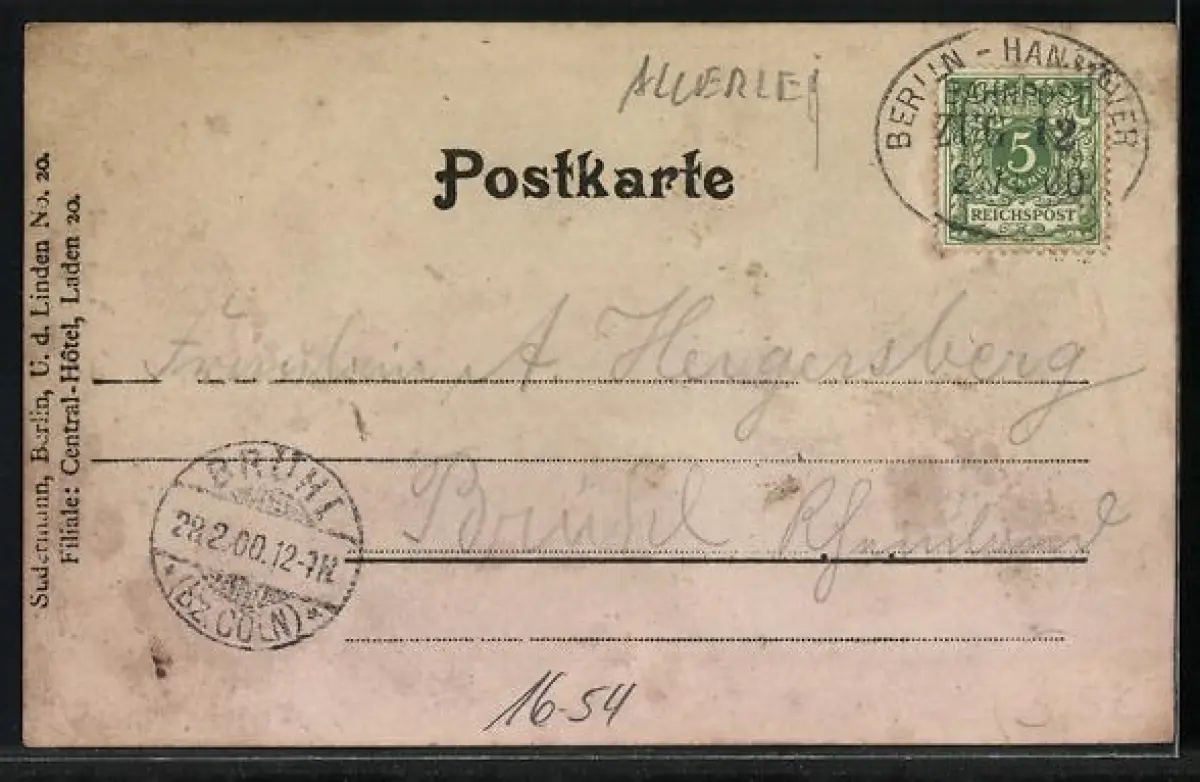 ALLERLEI
BERLIN - HANNOVER
BAHNPOST
ZUG 12
5
REICHSPOST
Postkarte
Sudermann, Berlin, U. d. Linden No. 20.
Filiale: Central-Hôtel, Laden 20.
Fräulein A. Hergersberg
Brühl Rheinland
BRÜHL
28.2.00.12-1N.
*(BZ.CÖLN)*
16-54